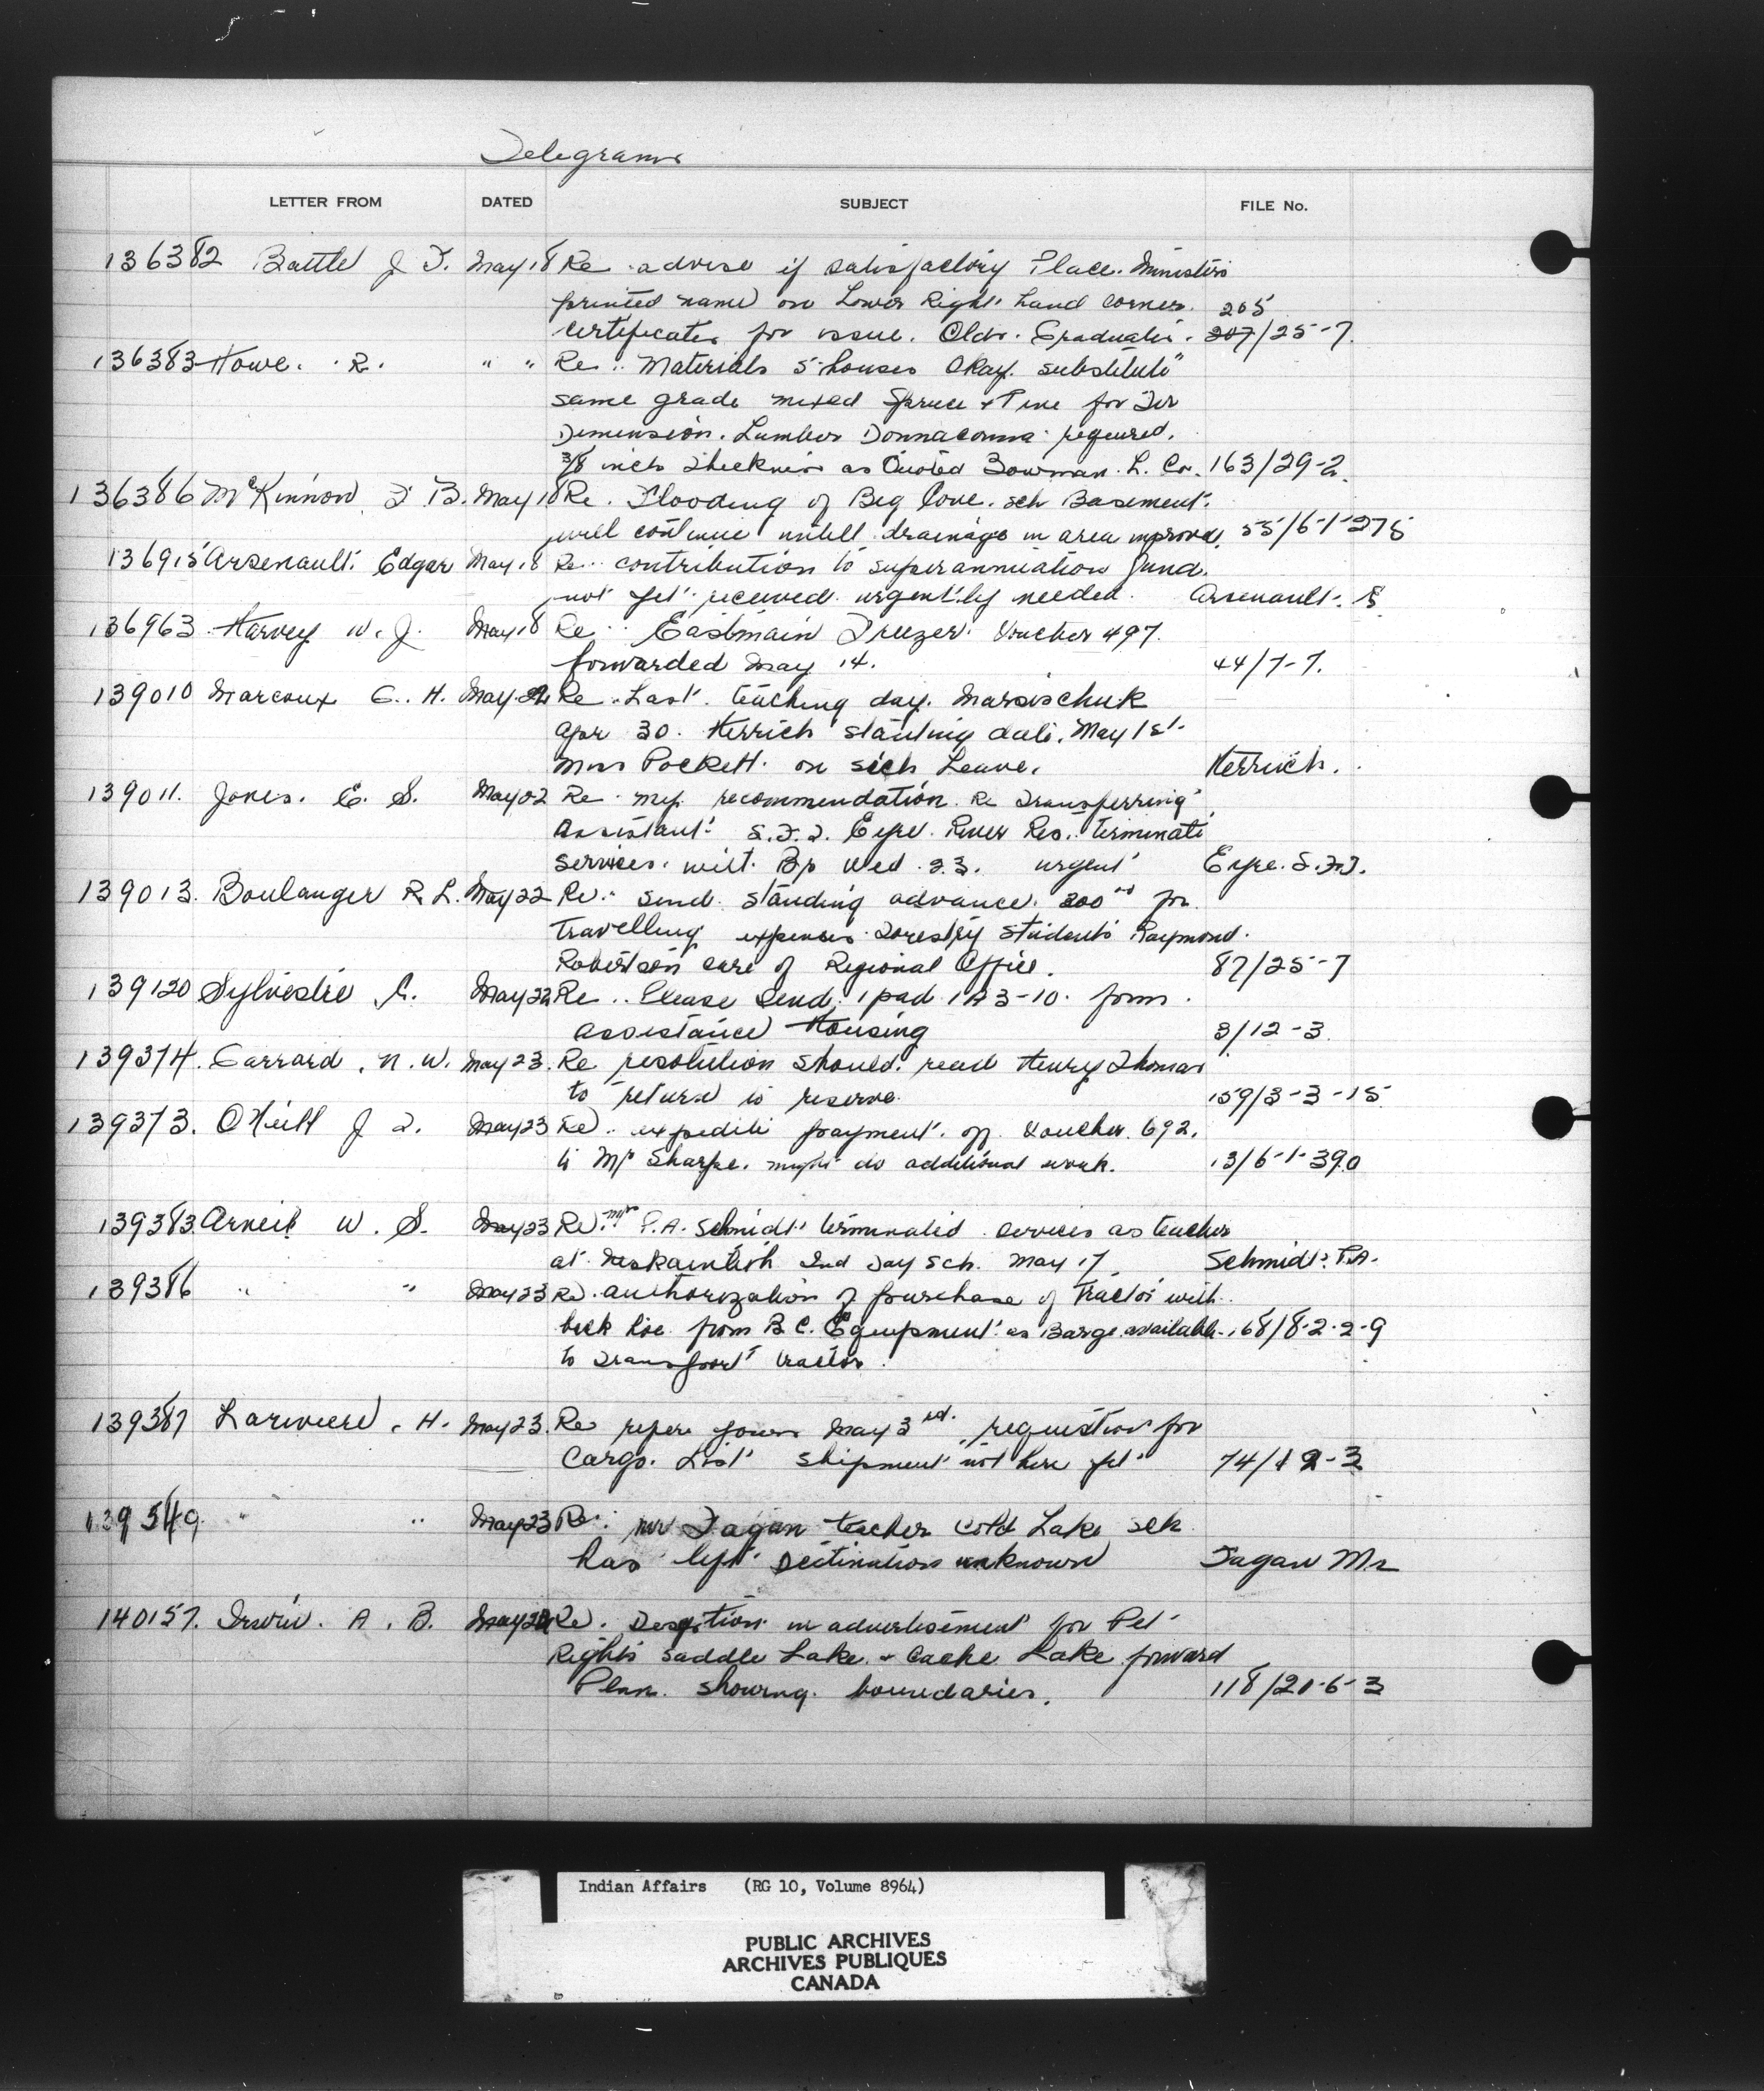 Telegrams
LETTER FROM DATED SUBJECT FILE No.
136382 Battle J F. May 18 Re advise if satisfactory Place. Ministers
printed name on Lower Right hand corner. 205
Certificates for issue. Oldr. Graduates. 207/25-7.
136383 Howe. R. " " Re. Materials 5 houses Okay. substitute
same grade mixed Spruce + Pine for Fir
Dimension. Lumber Donnaconna required.
3/8 inch thickness as Quoted Bowman. L. Co. 163/29-2.
136386 McKinnon F. B. May 18 Re. Flooding of Big Cove. sch Basement.
will continue untill drainage in area improved. 55/6-1-275
136915 Arsenault. Edgar May 18 Re contribution to superannuation fund.
not yet received urgently needed. Arsenault. E
136963 Harvey W. J. May 18 Re Eastmain Freezer. Voucher 497.
forwarded May 14. 44/7-7.
139010 Marcoux G. H. May 22 Re. Last teaching day.
Apr 30. Herrich starting date. May 1st.
Miss Pockett. on sick Leave. Herrich.
139011. Jones. E. S. May 22 Re my recommendation. Re Transferring
Assistant. S.F.J. Eyre. River Res. terminate
services. Wed. 23. urgent Eyre. S.F.J.
139013. Boulanger R. L. May 22 Re: send standing advance. 200 00 for
travelling expenses Forestry students Raymond.
Robertson care of Regional Office. 87/25-7
139120 Sylvestre A. May 22 Re.. Please send. 1 pad 1A3-10. form
assistance Housing 3/12-3.
139374. Garrard, N. W. May 23. Re resolution should. read Henry Thomas
to return to reserve. 159/3-3-15
139373. O'Neill J. T. May 23 Re.. expedite payment. of. Voucher. 692.
to Mr Sharpe. might do additional work. 13/6-1-390
139383 Arneil W. S. May 23 Re. mrs P.A. Schmidt terminated services as teacher
at Ind Day Sch. May 17. Schmidt. P.A.
139386 " " May 23 Re. authorization of purchase of Tractor with
back hoe from B C. Equipment. as Barge available. 168/8-2-2-9
to transport tractor.
139387 Lariviere, H. May 23. Re refer yours May 3rd. requisition for
Cargo. List shipment not here yet 74/12-3
139549. " " May 23 Re: Mr Fagan teacher Cold Lake sch
has left Destination unknown Fagan Mr
140157. Irwin. A. B. May Re. Desption in advertisement for Pet
Rights Saddle Lake. + Cache Lake forward
Plan. showing. boundaries. 118/20-6-3
Indian Affairs (RG 10, Volume 8964)
PUBLIC ARCHIVES
ARCHIVES PUBLIQUES
CANADA